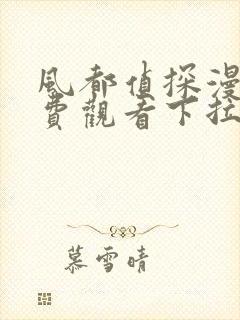 風都偵探漫
費觀看下拉
慕雪晴